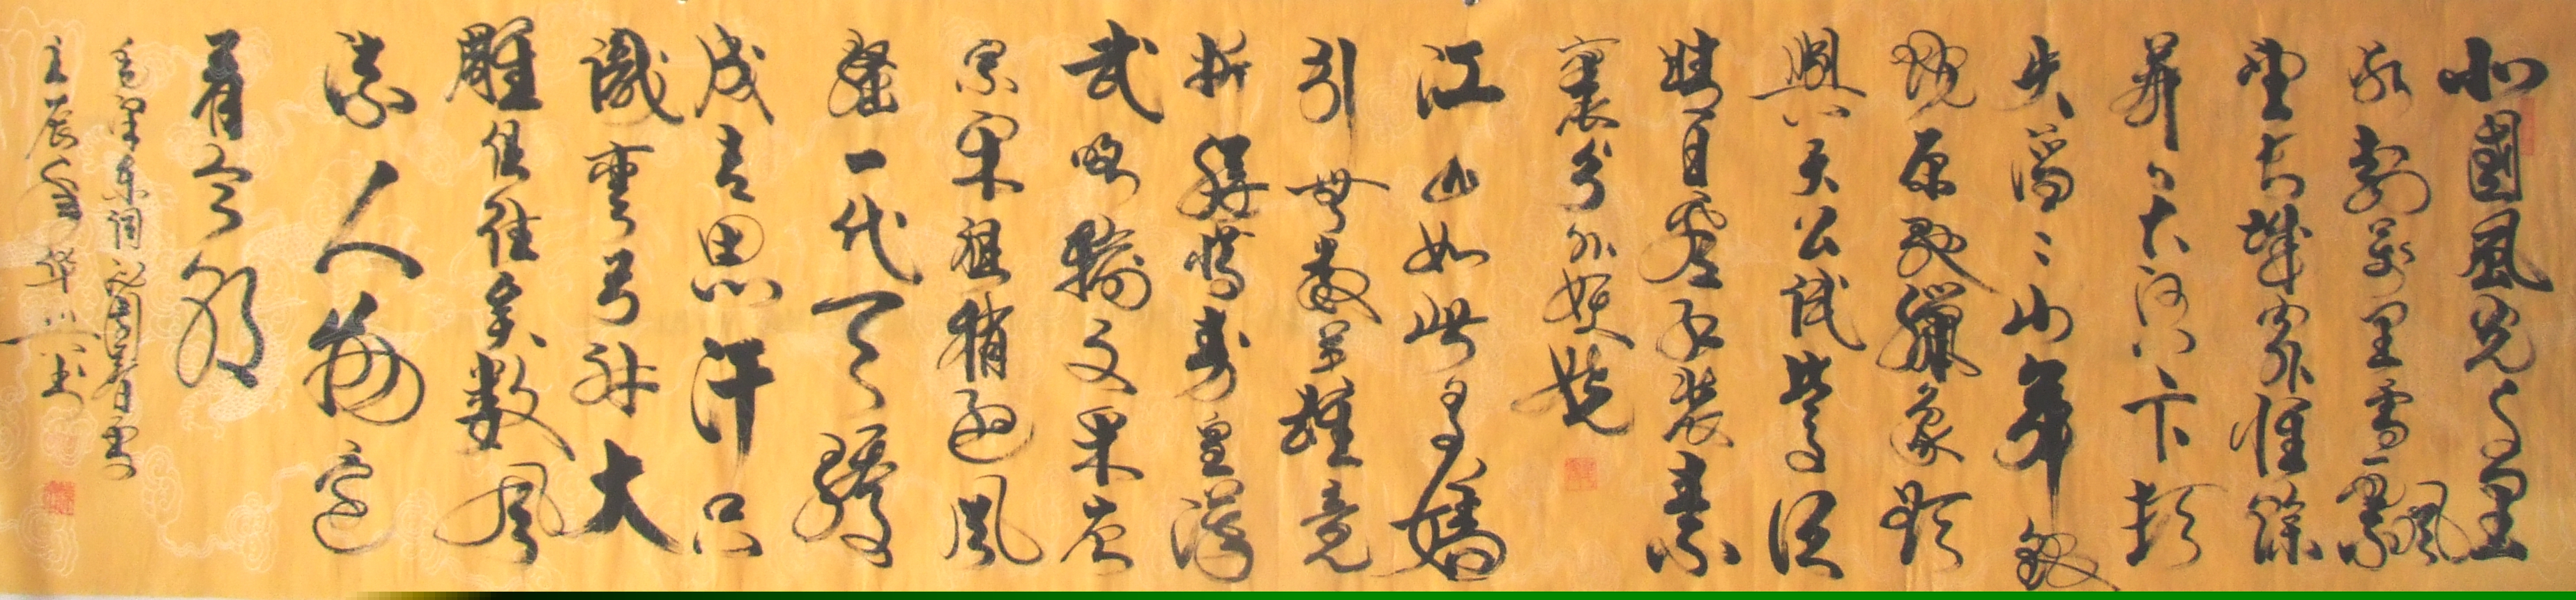 北國風光千里
冰封萬里雪飄
望長城內外惟餘
莽〻大河上下頓
失滔〻山舞銀
蛇原馳臘象欲
與天公試比高須
晴日看紅裝素
裹分外妖嬈
江山如此多嬌
引無數英雄競
折腰惜秦皇漢
武略輸文采唐
宗宋祖稍遜風
騷一代天驕
成吉思汗只
識彎弓射大
雕俱往矣數風
流人物還
看今朝
毛澤東詞沁園春雪
壬辰年華書